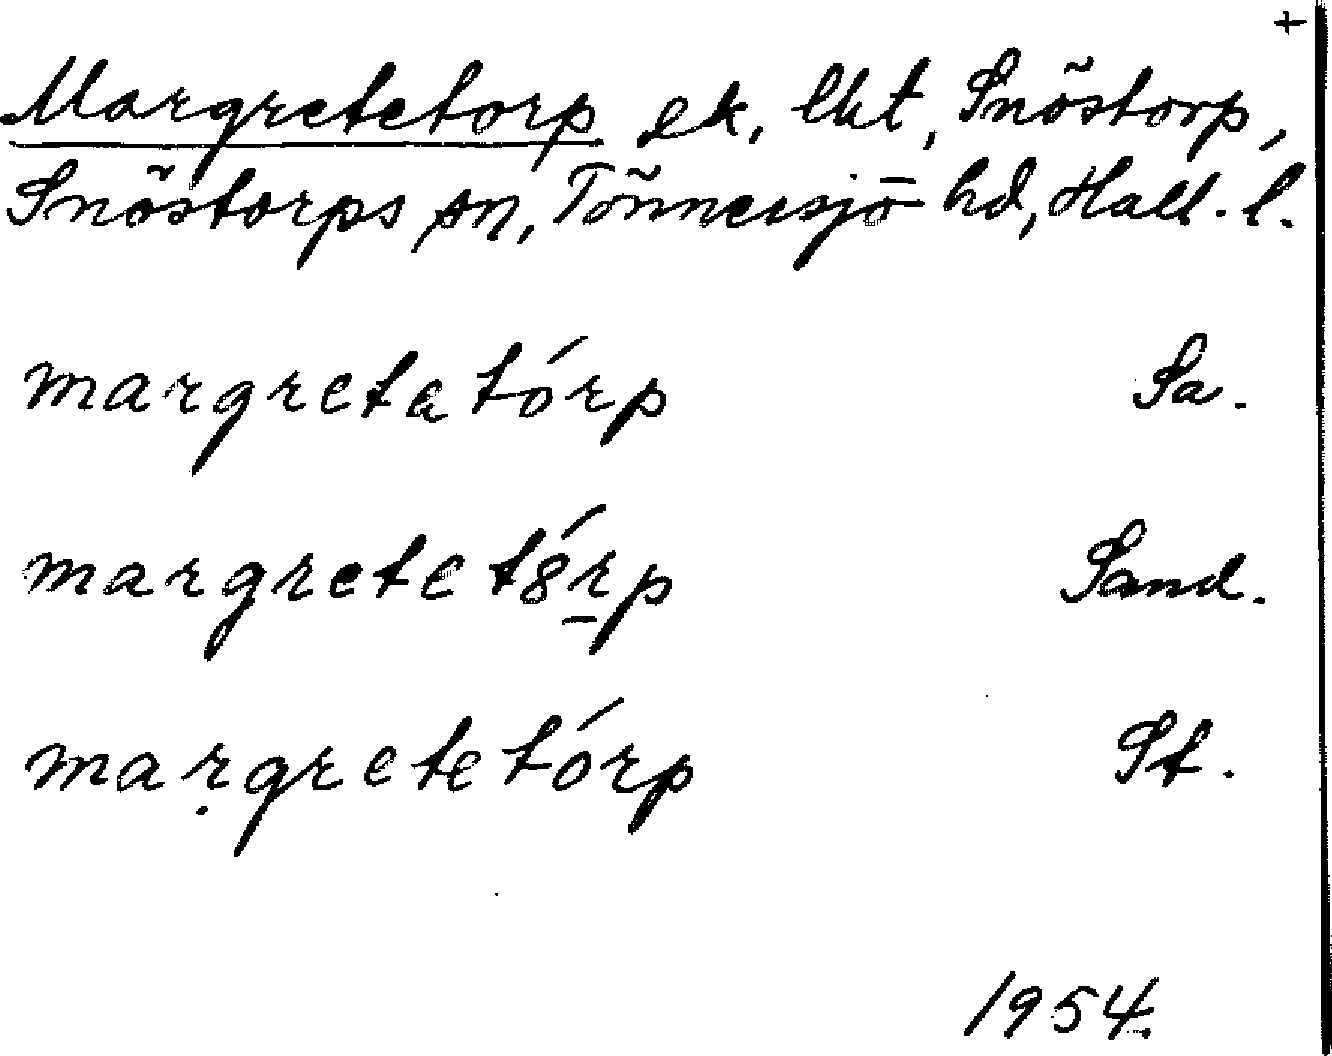 +
Margretetorp ek, lht, Snöstorp,
Snöstorps sn, Tönnersjö hd, Hall. l.
margretatórp Sa.
margretet8́r̲p Sand.
maṛgretetórp St.
1954.